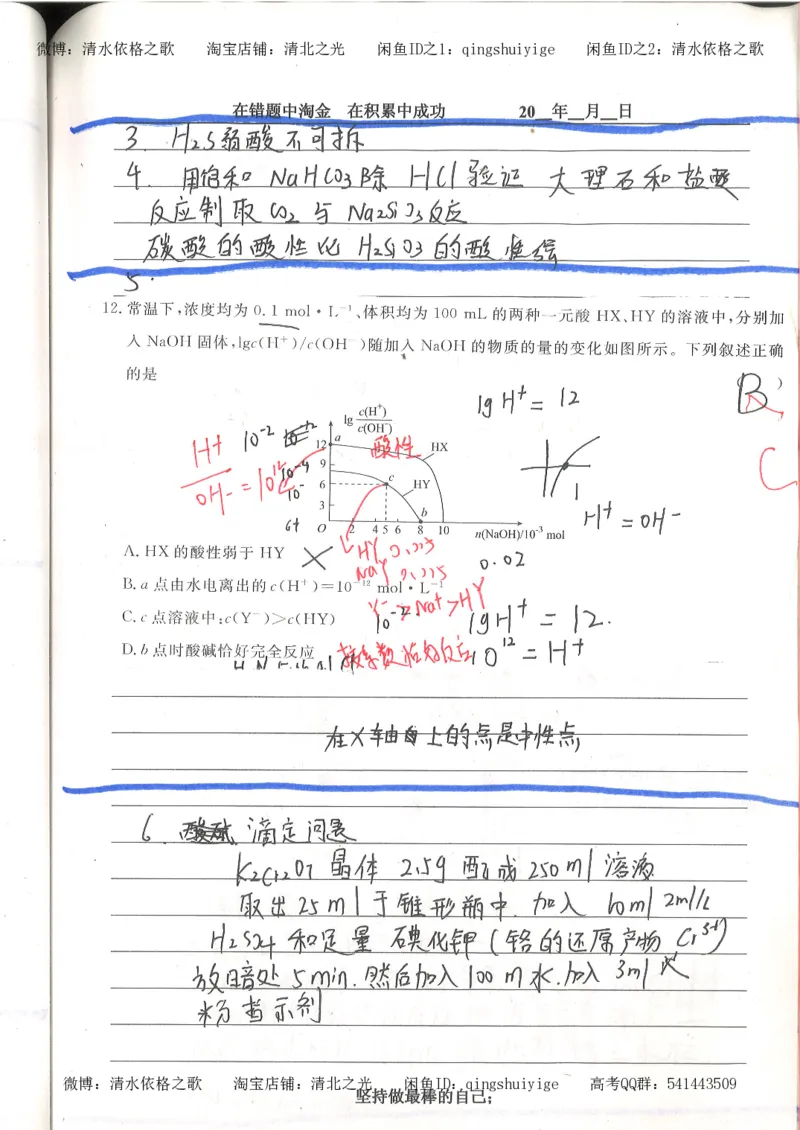 微博：清水依格之歌 淘宝店铺：清北之光 闲鱼ID之1：qingshuiyige 闲鱼ID之2：清水依格之歌
在错题中淘金 在积累中成功 20__年__月__日
3. H₂S弱酸不可拆
4. 用饱和NaHCO₃除HCl验证大理石和盐酸
反应制取CO₂与Na₂SiO₃反应
碳酸的酸性比H₂SiO3的酸性强
5.
12. 常温下,浓度均为 0.1 mol·L⁻¹、体积均为 100 mL 的两种一元酸 HX、HY 的溶液中,分别加
入 NaOH 固体,lgc(H⁺)/c(OH⁻)随加入 NaOH 的物质的量的变化如图所示。下列叙述正确
的是 ）
B
C
lg H⁺ = 12
lg c(H⁺)/c(OH⁻)
H+/OH- = 10¹²
10⁻²
酸性
12 a HX
9
6 c HY
3 b
O 2 4 5 6 8 10 n(NaOH)/10⁻³ mol
1
H⁺ = OH⁻
A. HX 的酸性弱于 HY
HY 0.005
NaY 0.005
0.02
B. a 点由水电离出的 c(H⁺)=10⁻¹² mol·L⁻¹
Y⁻>Na⁺>HY
C. c 点溶液中:c(Y⁻)>c(HY)
10⁻²
lgH⁺ = 12.
D. b 点时酸碱恰好完全反应
10¹² = H⁺
在X轴上的点是中性点
6. 滴定问题
K₂Cr₂O7晶体 2.5g 配成250ml溶液
取出25ml于锥形瓶中.加入10ml 2ml/L
H₂SO4和足量碘化钾(铬的还原产物Cr³⁺)
放暗处5min.然后加入100ml水.加入3ml淀
粉当示剂
微博：清水依格之歌 淘宝店铺：清北之光 闲鱼ID：qingshuiyige 高考QQ群：541443509
坚持做最棒的自己;